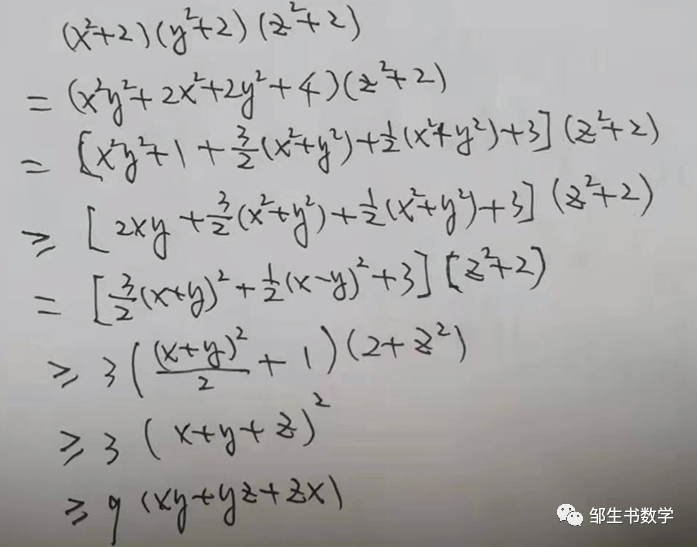 (x²+2)(y²+2)(z²+2)
= (x²y²+2x²+2y²+4)(z²+2)
= [x²y²+1+3/2(x²+y²)+1/2(x²+y²)+3](z²+2)
≥ [2xy+3/2(x²+y²)+1/2(x²+y²)+3](z²+2)
= [3/2(x+y)²+1/2(x-y)²+3][z²+2)
≥ 3((x+y)²/2+1)(2+z²)
≥ 3(x+y+z)²
≥ 9(xy+yz+zx)
邹生书数学